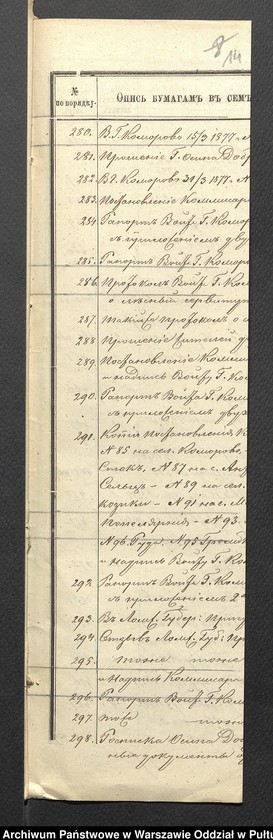 14
№ по порядку.
Опись бумагамъ въ сем
280. В. Г. Коморово 15/3 1877.
281. Прошеніе Г. Осипа Доб
282. Вд. Коморово 31/3 1877. №
283. Постановленіе Коммисара
284. Рапортъ Войта Г. Комор
съ приложеніемъ дву
285. Рапортъ Войта Г. Комор
286. Протоколъ Войта Г. Ком
о лѣсныхъ сервитут
287. Такийже протоколъ о
288. Прошеніе жителей
289. Постановленіе Коммис
надпись Войту Г. Ком
290. Рапортъ Войта Г. Комо
съ приложеніемъ двух
291. Копіи постановленія К
№ 85 на сел. Коморово.
№ 87 на с.
Сельцъ № 89 на сел.
№ 91 на с. М
№ 93.
№ 96. Гуды. № 95
надпись Войту Г. Ко
292. Рапортъ Войта Г. Ком
съ приложеніемъ 2
293. Въ Ломж. Губер: При
294. Отзывъ Ломж. Губ: Пр
295. тоже тоже
Надпись Коммисара
296. Рапортъ Войта Г. Ком
297. тоже тоже
298. Росписка Осипа До
документы
Archiwum Państwowe w Warszawie Oddział w Pułtu